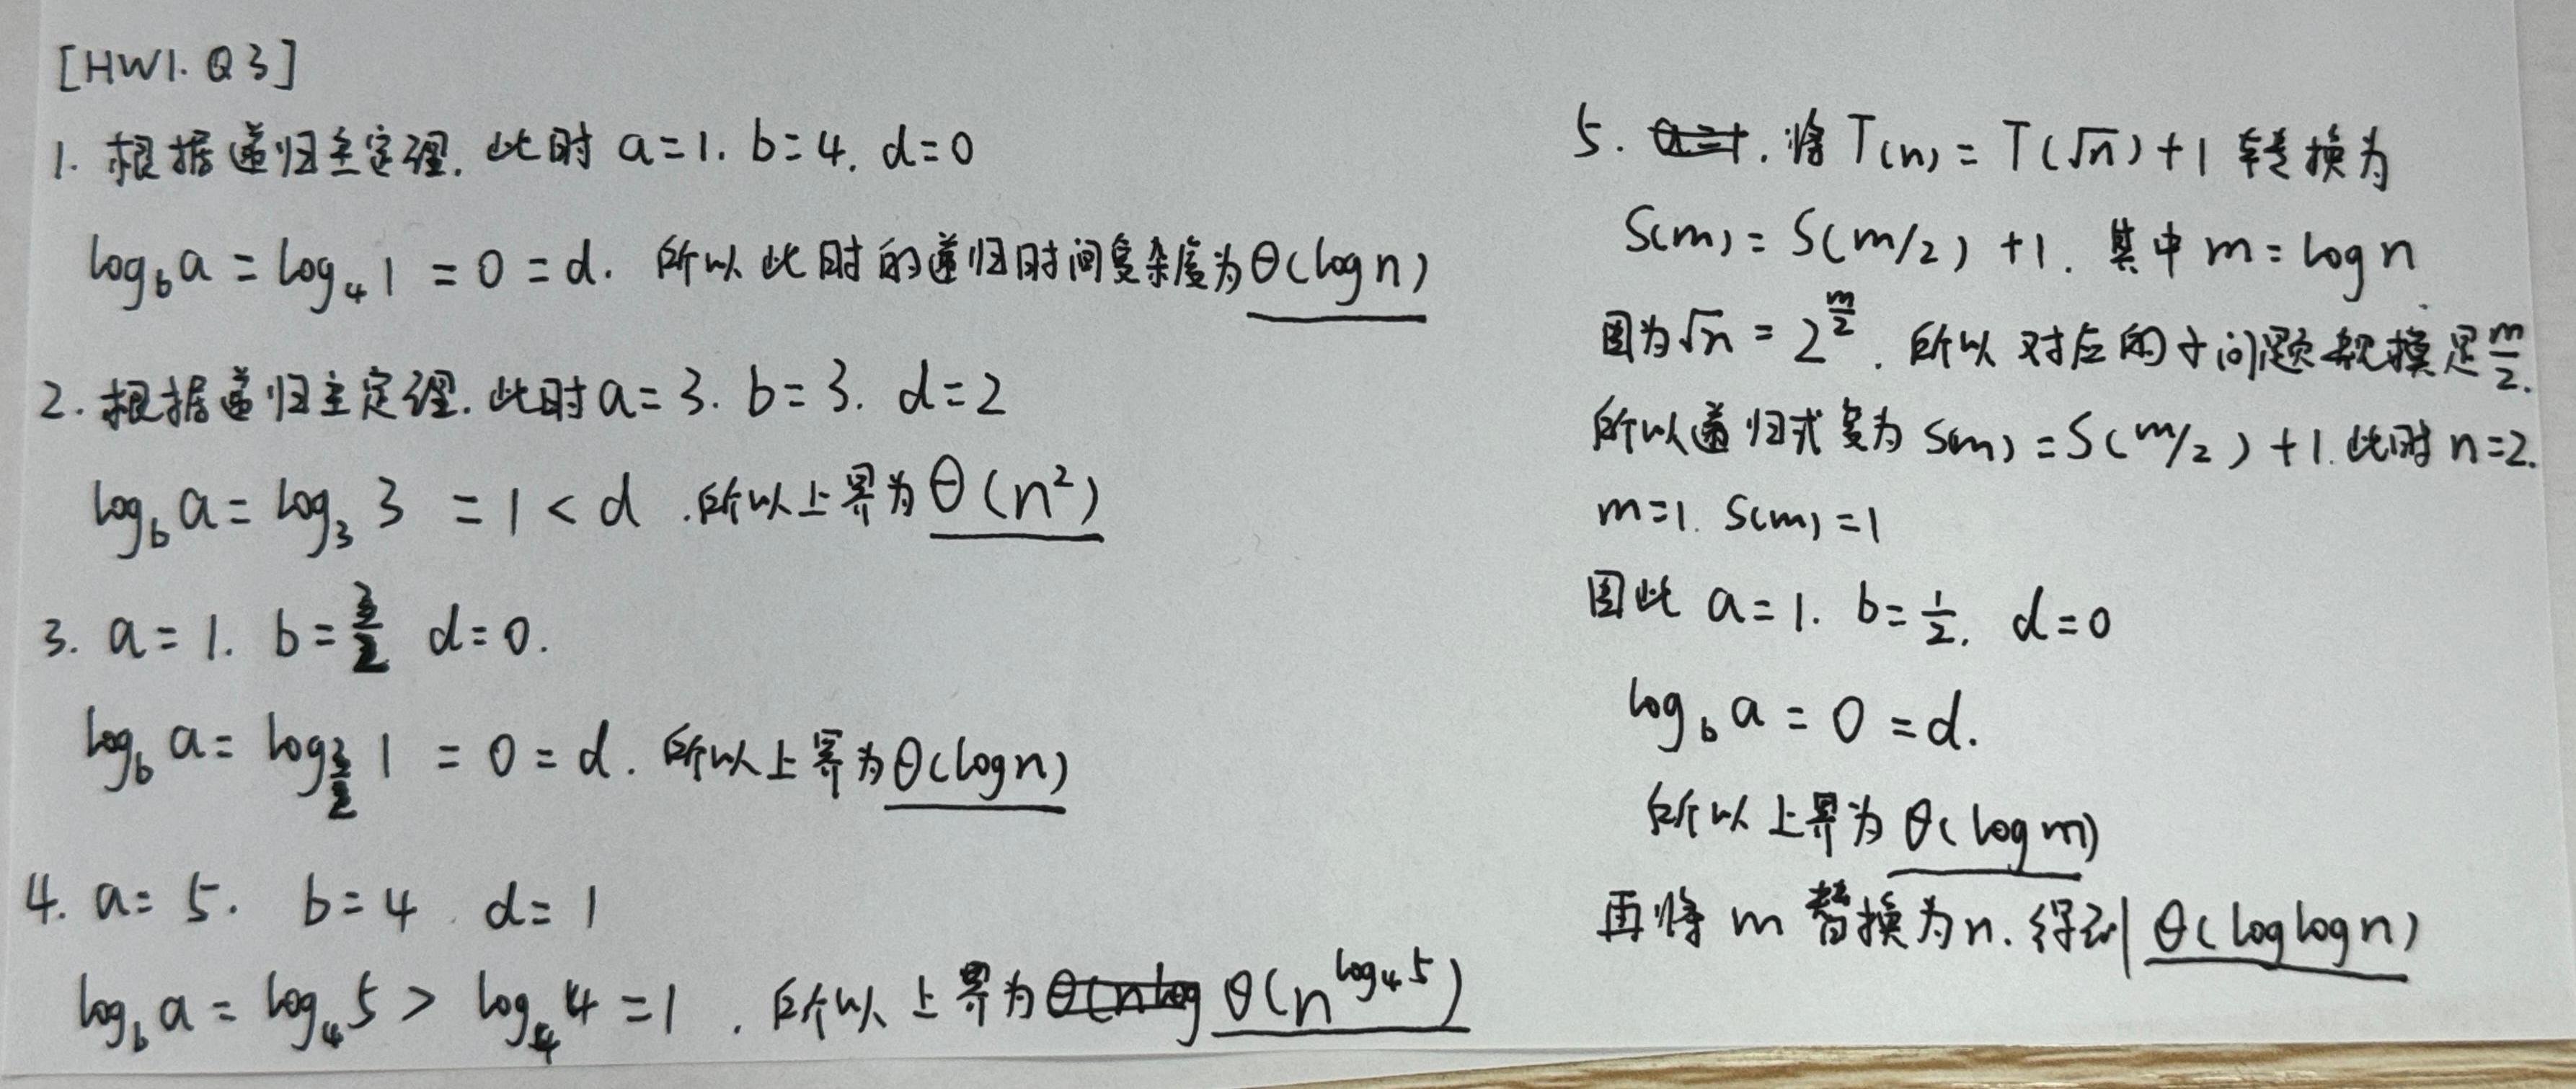 [HW1. Q3]
1. 根据递归主定理. 此时 a=1. b=4. d=0
log_b a = log_4 1 = 0 = d. 所以此时的递归时间复杂度为 θ(log n)
2. 根据递归主定理. 此时 a=3. b=3. d=2
log_b a = log_3 3 = 1 < d .所以上界为 θ(n²)
3. a=1. b=3/2 d=0.
log_b a = log_{3/2} 1 = 0 = d. 所以上界为 θ(log n)
4. a=5. b=4. d=1
log_b a = log_4 5 > log_4 4 = 1. 所以上界为 θ(n log θ(n^{log_4 5})
5. a=1. 将 T(n) = T(√n)+1 转换为
S(m) = S(m/2) +1. 其中 m = log n
因为 √n = 2^{m/2}. 所以对应的子问题规模是 m/2.
所以递归式变为 S(m) = S(m/2) +1. 此时 n=2.
m=1. S(m)=1
因此 a=1. b=1/2. d=0
log_b a = 0 = d.
所以上界为 θ(log m)
再将 m 替换为 n. 得到 θ(log log n)